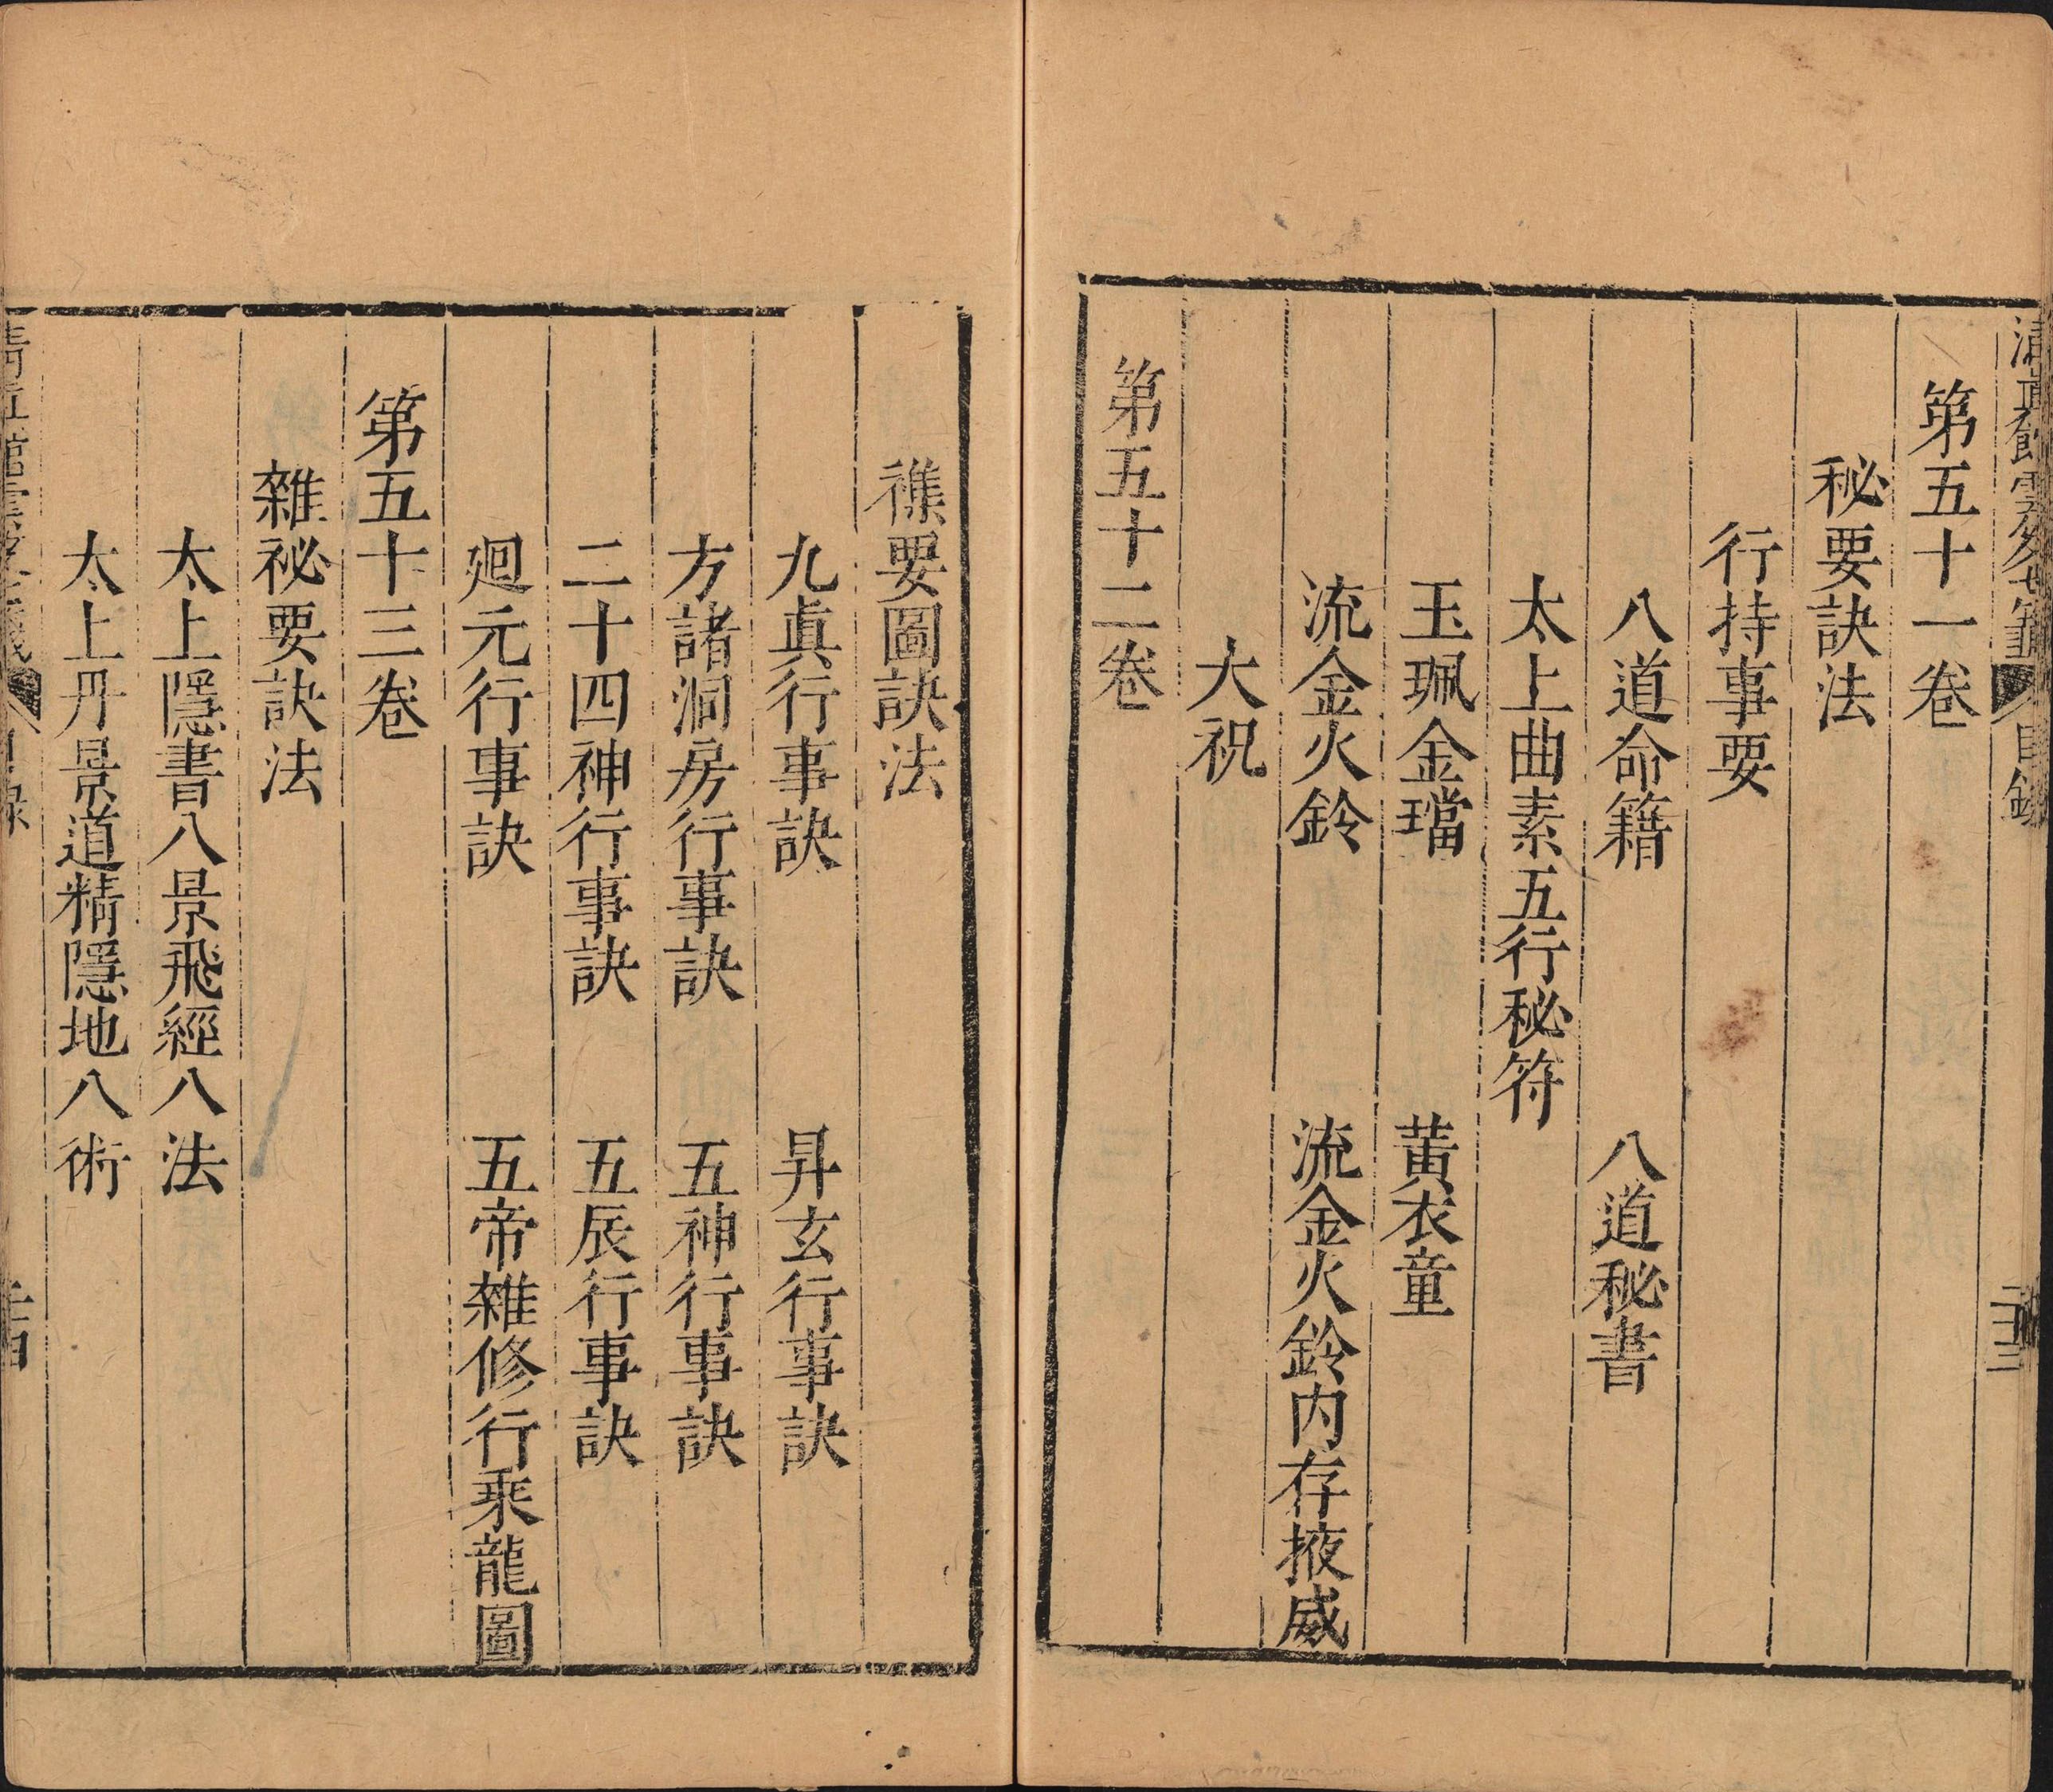 清真館雲笈七籤 目錄 二十三
第五十一卷
秘要訣法
行持事要
八道命籍 八道秘書
太上曲素五行秘符
玉珮金璫 黃衣童
流金火鈴 流金火鈴内存掖威
大祝
第五十二卷
襍要圖訣法
九眞行事訣 昇玄行事訣
方諸洞房行事訣 五神行事訣
二十四神行事訣 五辰行事訣
廻元行事訣 五帝雜修行乘龍圖
第五十三卷
雜祕要訣法
太上隱書八景飛經八法
太上丹景道精隱地八術